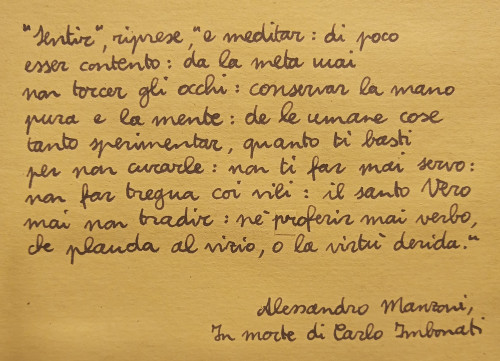 "Sentir", riprese, "e meditar: di poco
esser contento: da la meta mai
non torcer gli occhi: conservar la mano
pura e la mente: de le umane cose
tanto sperimentar, quanto ti basti
per non curarle: non ti far mai servo:
non far tregua coi vili: il santo Vero
mai non tradir: né proferir mai verbo,
che plauda al vizio, o la virtù derida."
Alessandro Manzoni,
In morte di Carlo Imbonati